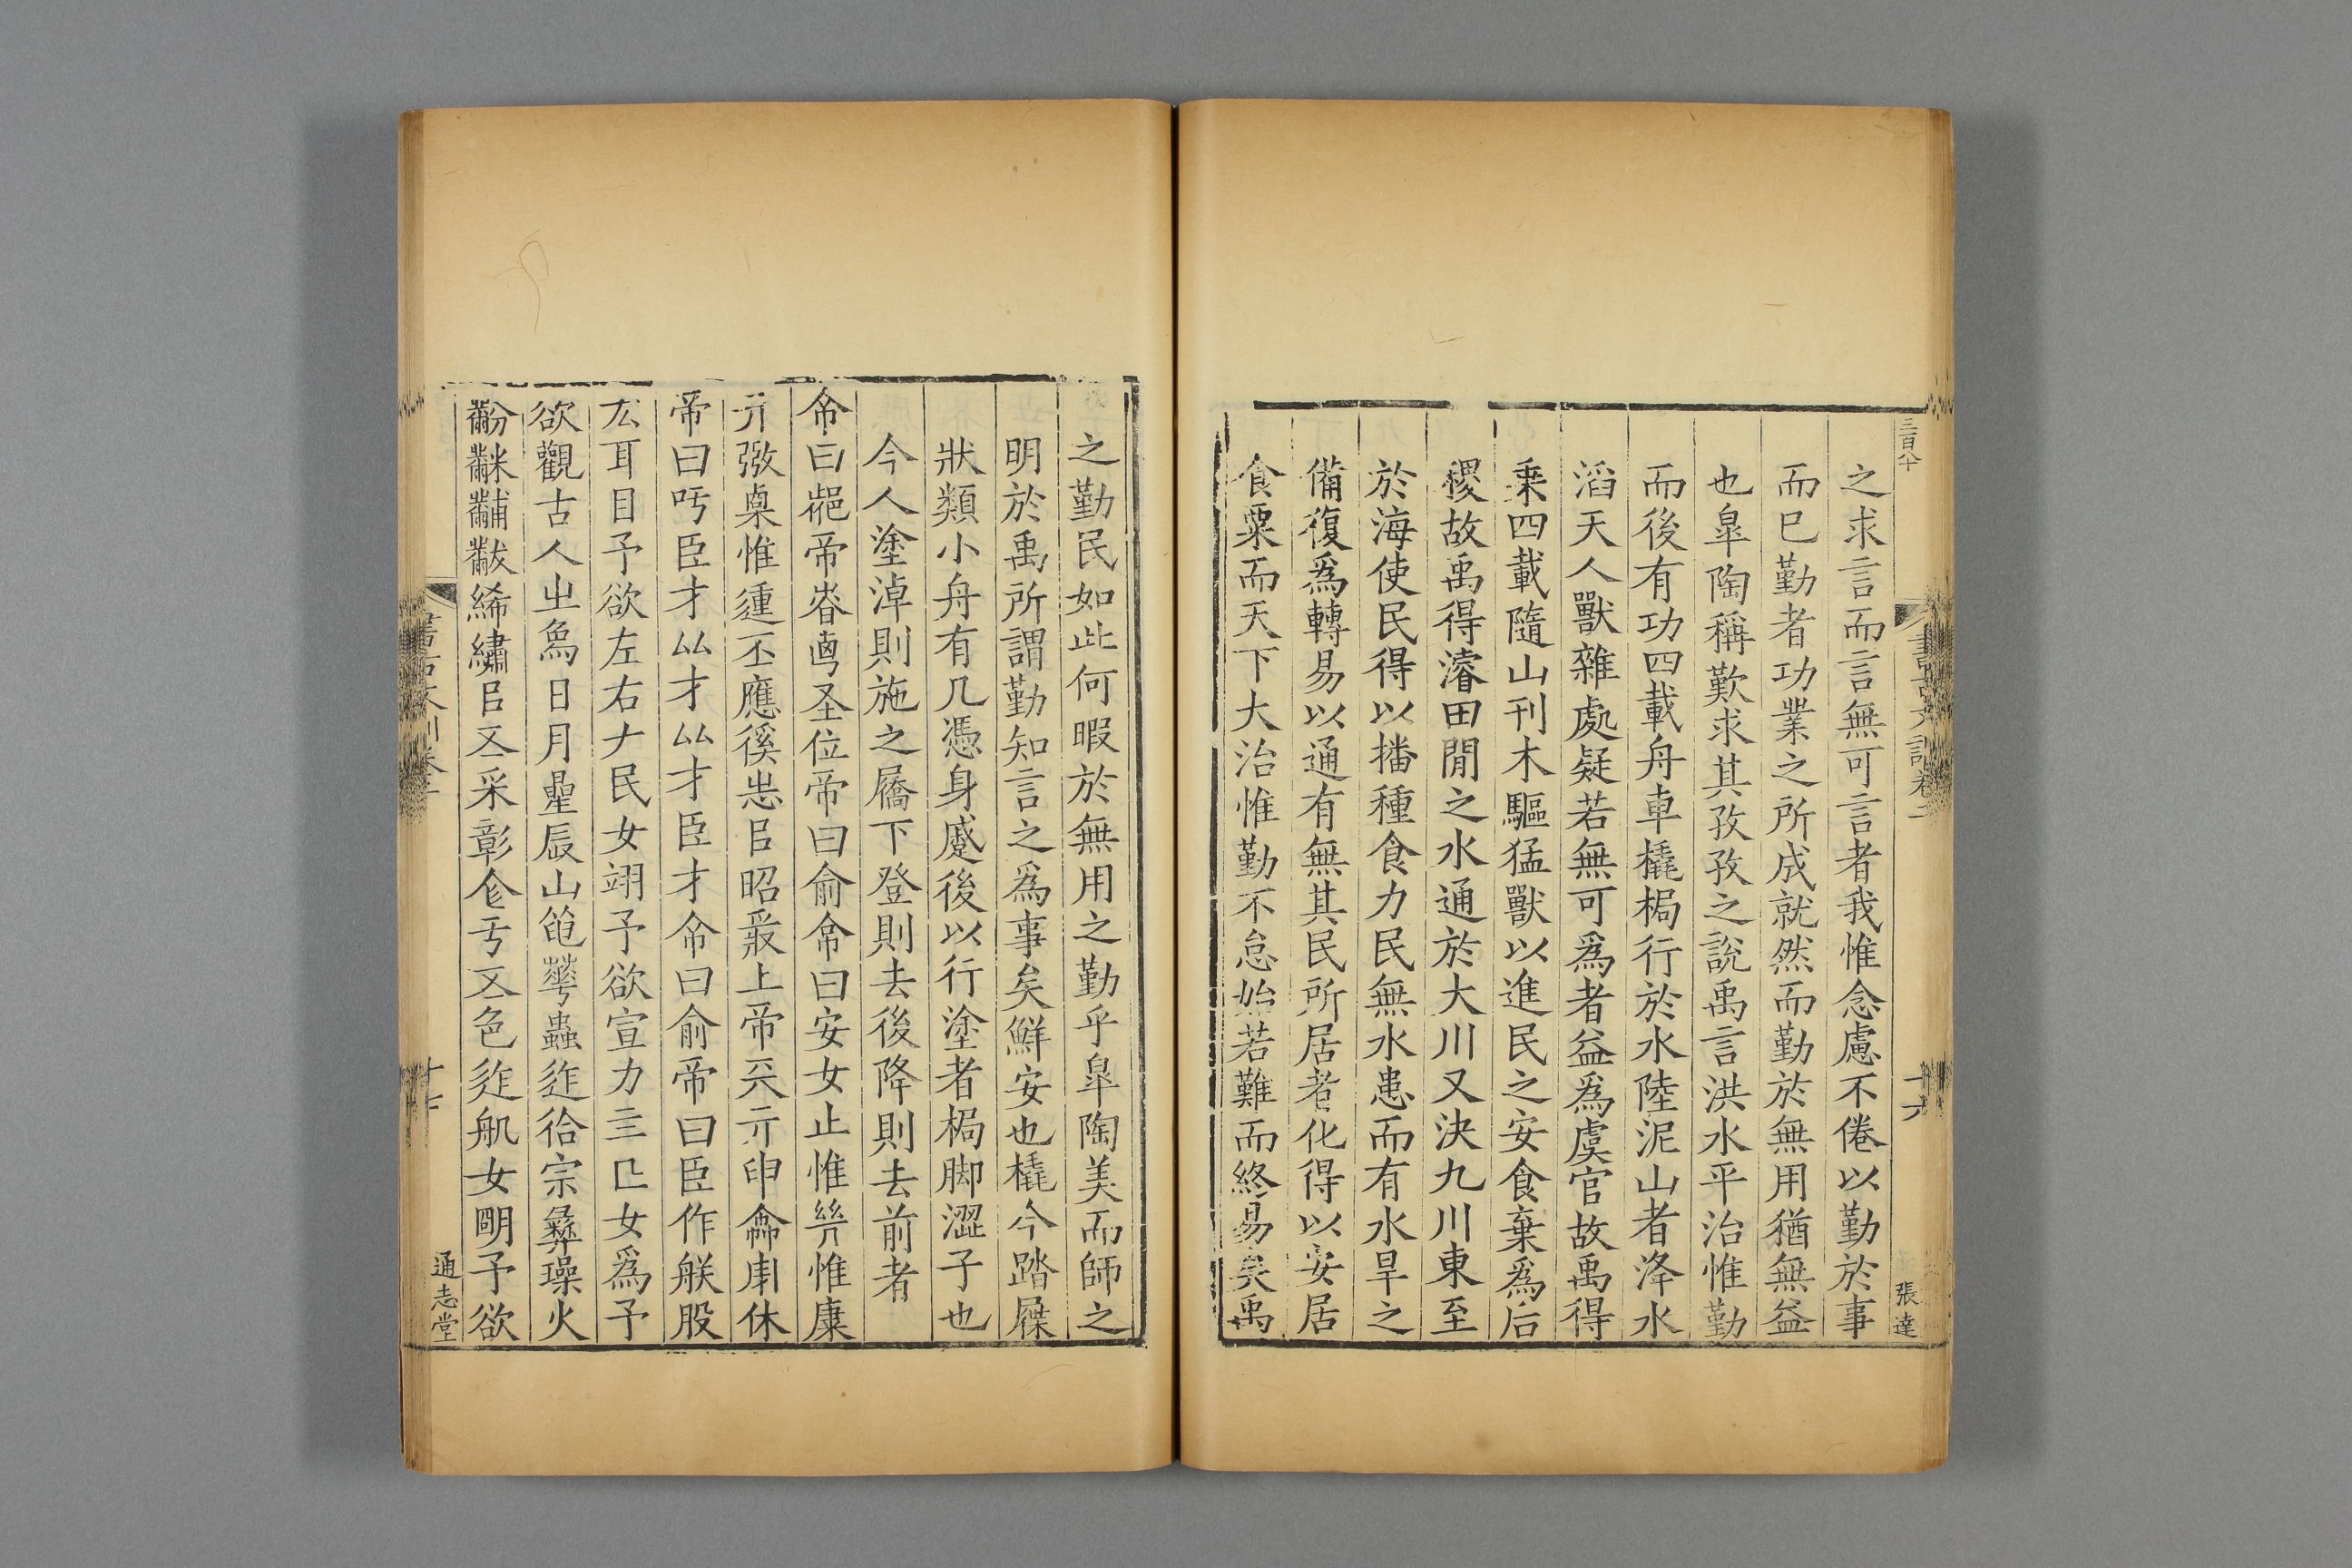 三百八十
之求言而言無可言者我惟念慮不倦以勤於事
而已勤者功業之所成就然而勤於無用猶無益
也皐陶稱歎求其孜孜之說禹言洪水平治惟勤
而後有功四載舟車橇梮行於水陸泥山者洚水
滔天人獸雜處疑若無可爲者益爲虞官故禹得
乗四載隨山刊木驅猛獸以進民之安食棄爲后
稷故禹得濬田閒之水通於大川又決九川東至
於海使民得以播種食力民無水患而有水旱之
備復爲轉易以通有無其民所居者化得以安居
食粟而天下大治惟勤不怠始若難而終易矣禹
書古文訓卷二
十六
張達
之勤民如此何暇於無用之勤乎皐陶美而師之
明於禹所謂勤知言之爲事矣鮮安也橇今踏屧
狀類小舟有几憑身蹙後以行塗者梮脚澀子也
今人塗淖則施之屩下登則去後降則去前者
帝曰俞帝曰安女止惟幾惟康
帝曰吁臣才厸才厸才臣才帝曰俞帝曰臣作股
厷耳目予欲左右ナ民女翊予欲宣力亖匚女爲予
欲觀古人㞢爲日月曐辰山䇬蟲迮袷宗彝璪火
黺黹黼黻絺繡㠯𠄡采彰仺亐𠄡色迮女朙予欲
書古文訓卷二
十七
通志堂